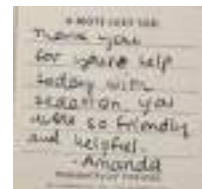 A NOTE JUST FOR
Thank you
for youre help
today with
sedation you
were so friendly
and helpful.
- Amanda